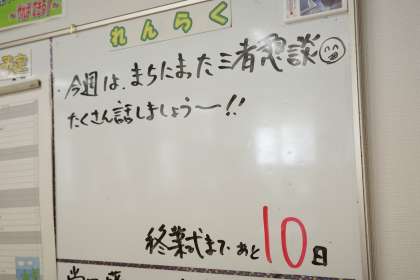 れんらく
・今週は、まちにまった三者懇談
たくさん話しましょう〜!!
終業式まで あと10日